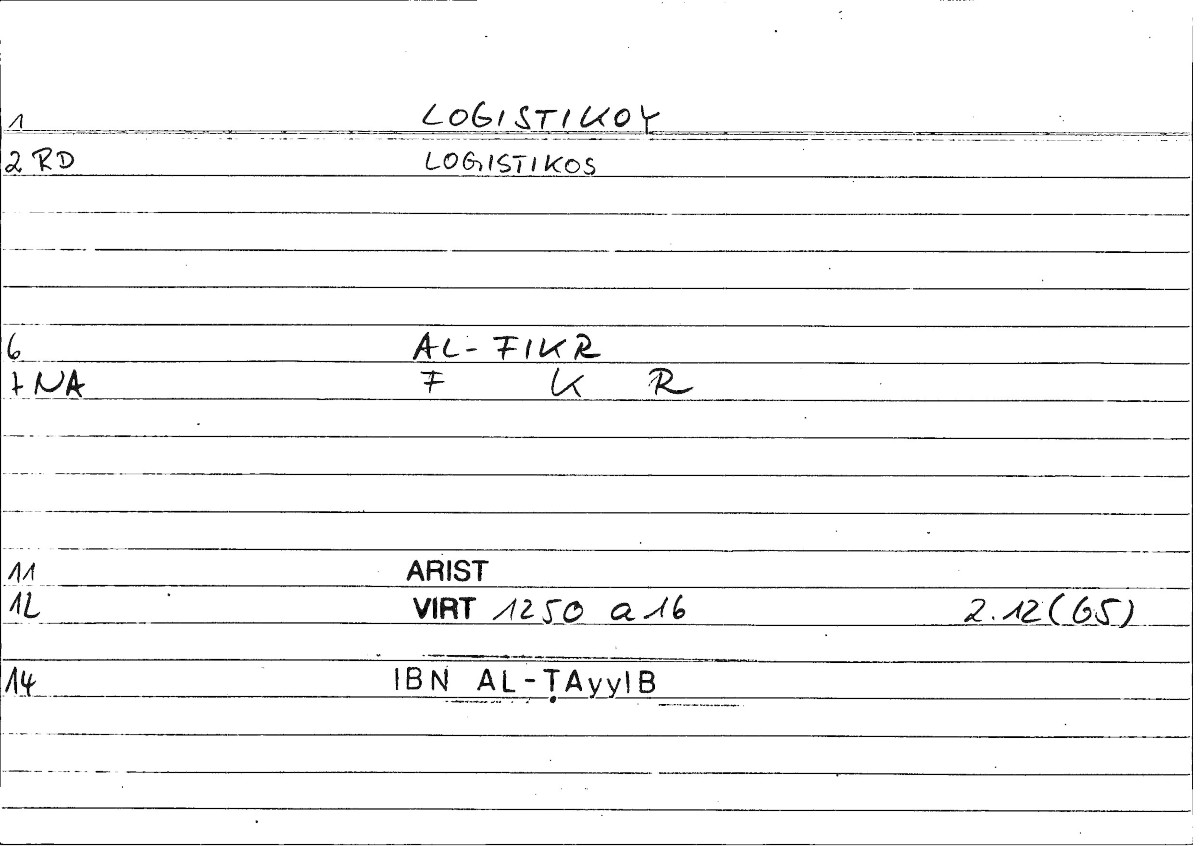 1 LOGISTIKOY
2 RD LOGISTIKOS
6 AL-FIKR
7 NA F K R
11 ARIST
12 VIRT 1250 a 16 2.12(65)
14 IBN AL-ṬAyyIB